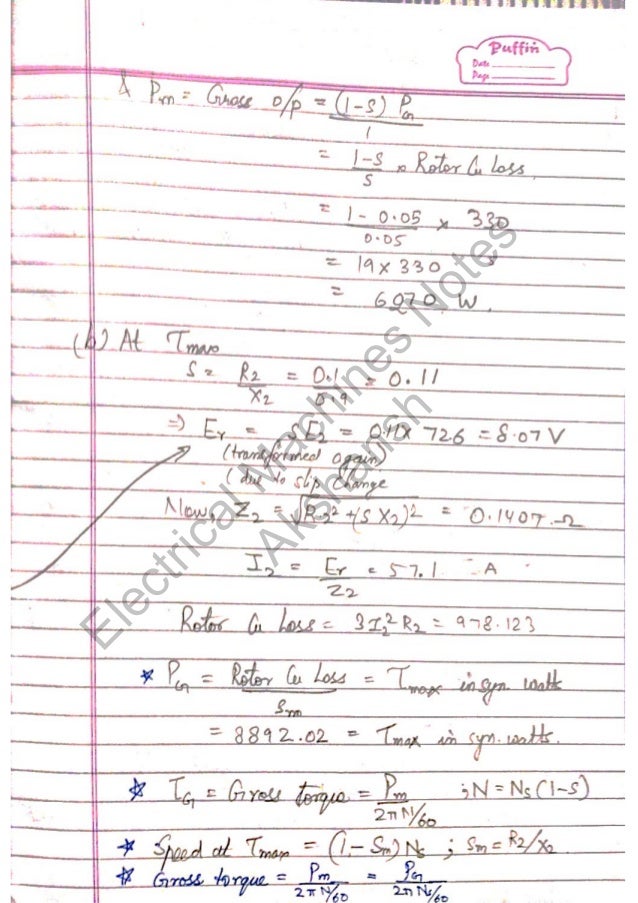 Puffin
Date
Page
& Pm = Gross o/p = (1-S) PG / 1
= 1-S / S × Rotor Cu Loss
= 1 - 0.05 / 0.05 × 330
= 19 × 330
= 6270 W.
(b) At Tmax
S = R2 / X2 = 0.1 / 0.9 = 0.11
=> Er = SE2 = 0.11 × 726 = 8.07 V
(transformed again)
(due to slip change
Now, Z2 = √R2² + (S X2)² = 0.1407 Ω
I2 = Er / Z2 = 57.1 A
Rotor Cu Loss = 3I2² R2 = 978.123
* PG = Rotor Cu Loss / Sm = Tmax in syn. watts
= 8892.02 = Tmax in syn. watts.
* TG = Gross torque = Pm / 2πN/60 ; N = Ns (1-S)
* Speed at Tmax = (1-Sm) Ns ; Sm = R2/X2
* Gross torque = Pm / 2πN/60 = PG / 2πNs/60
Electrical Machines Notes
Akshansh